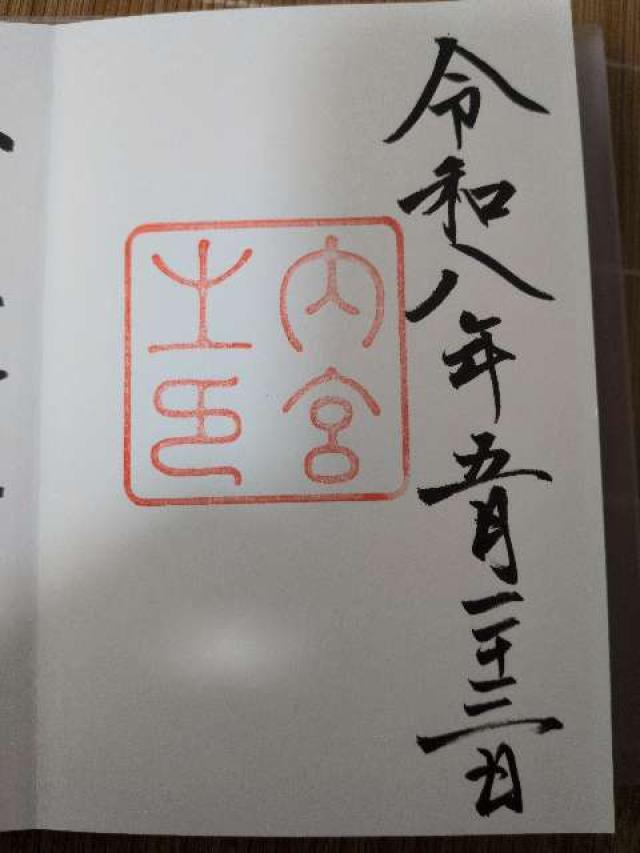 令和八年五月二十三日
内宮
之印